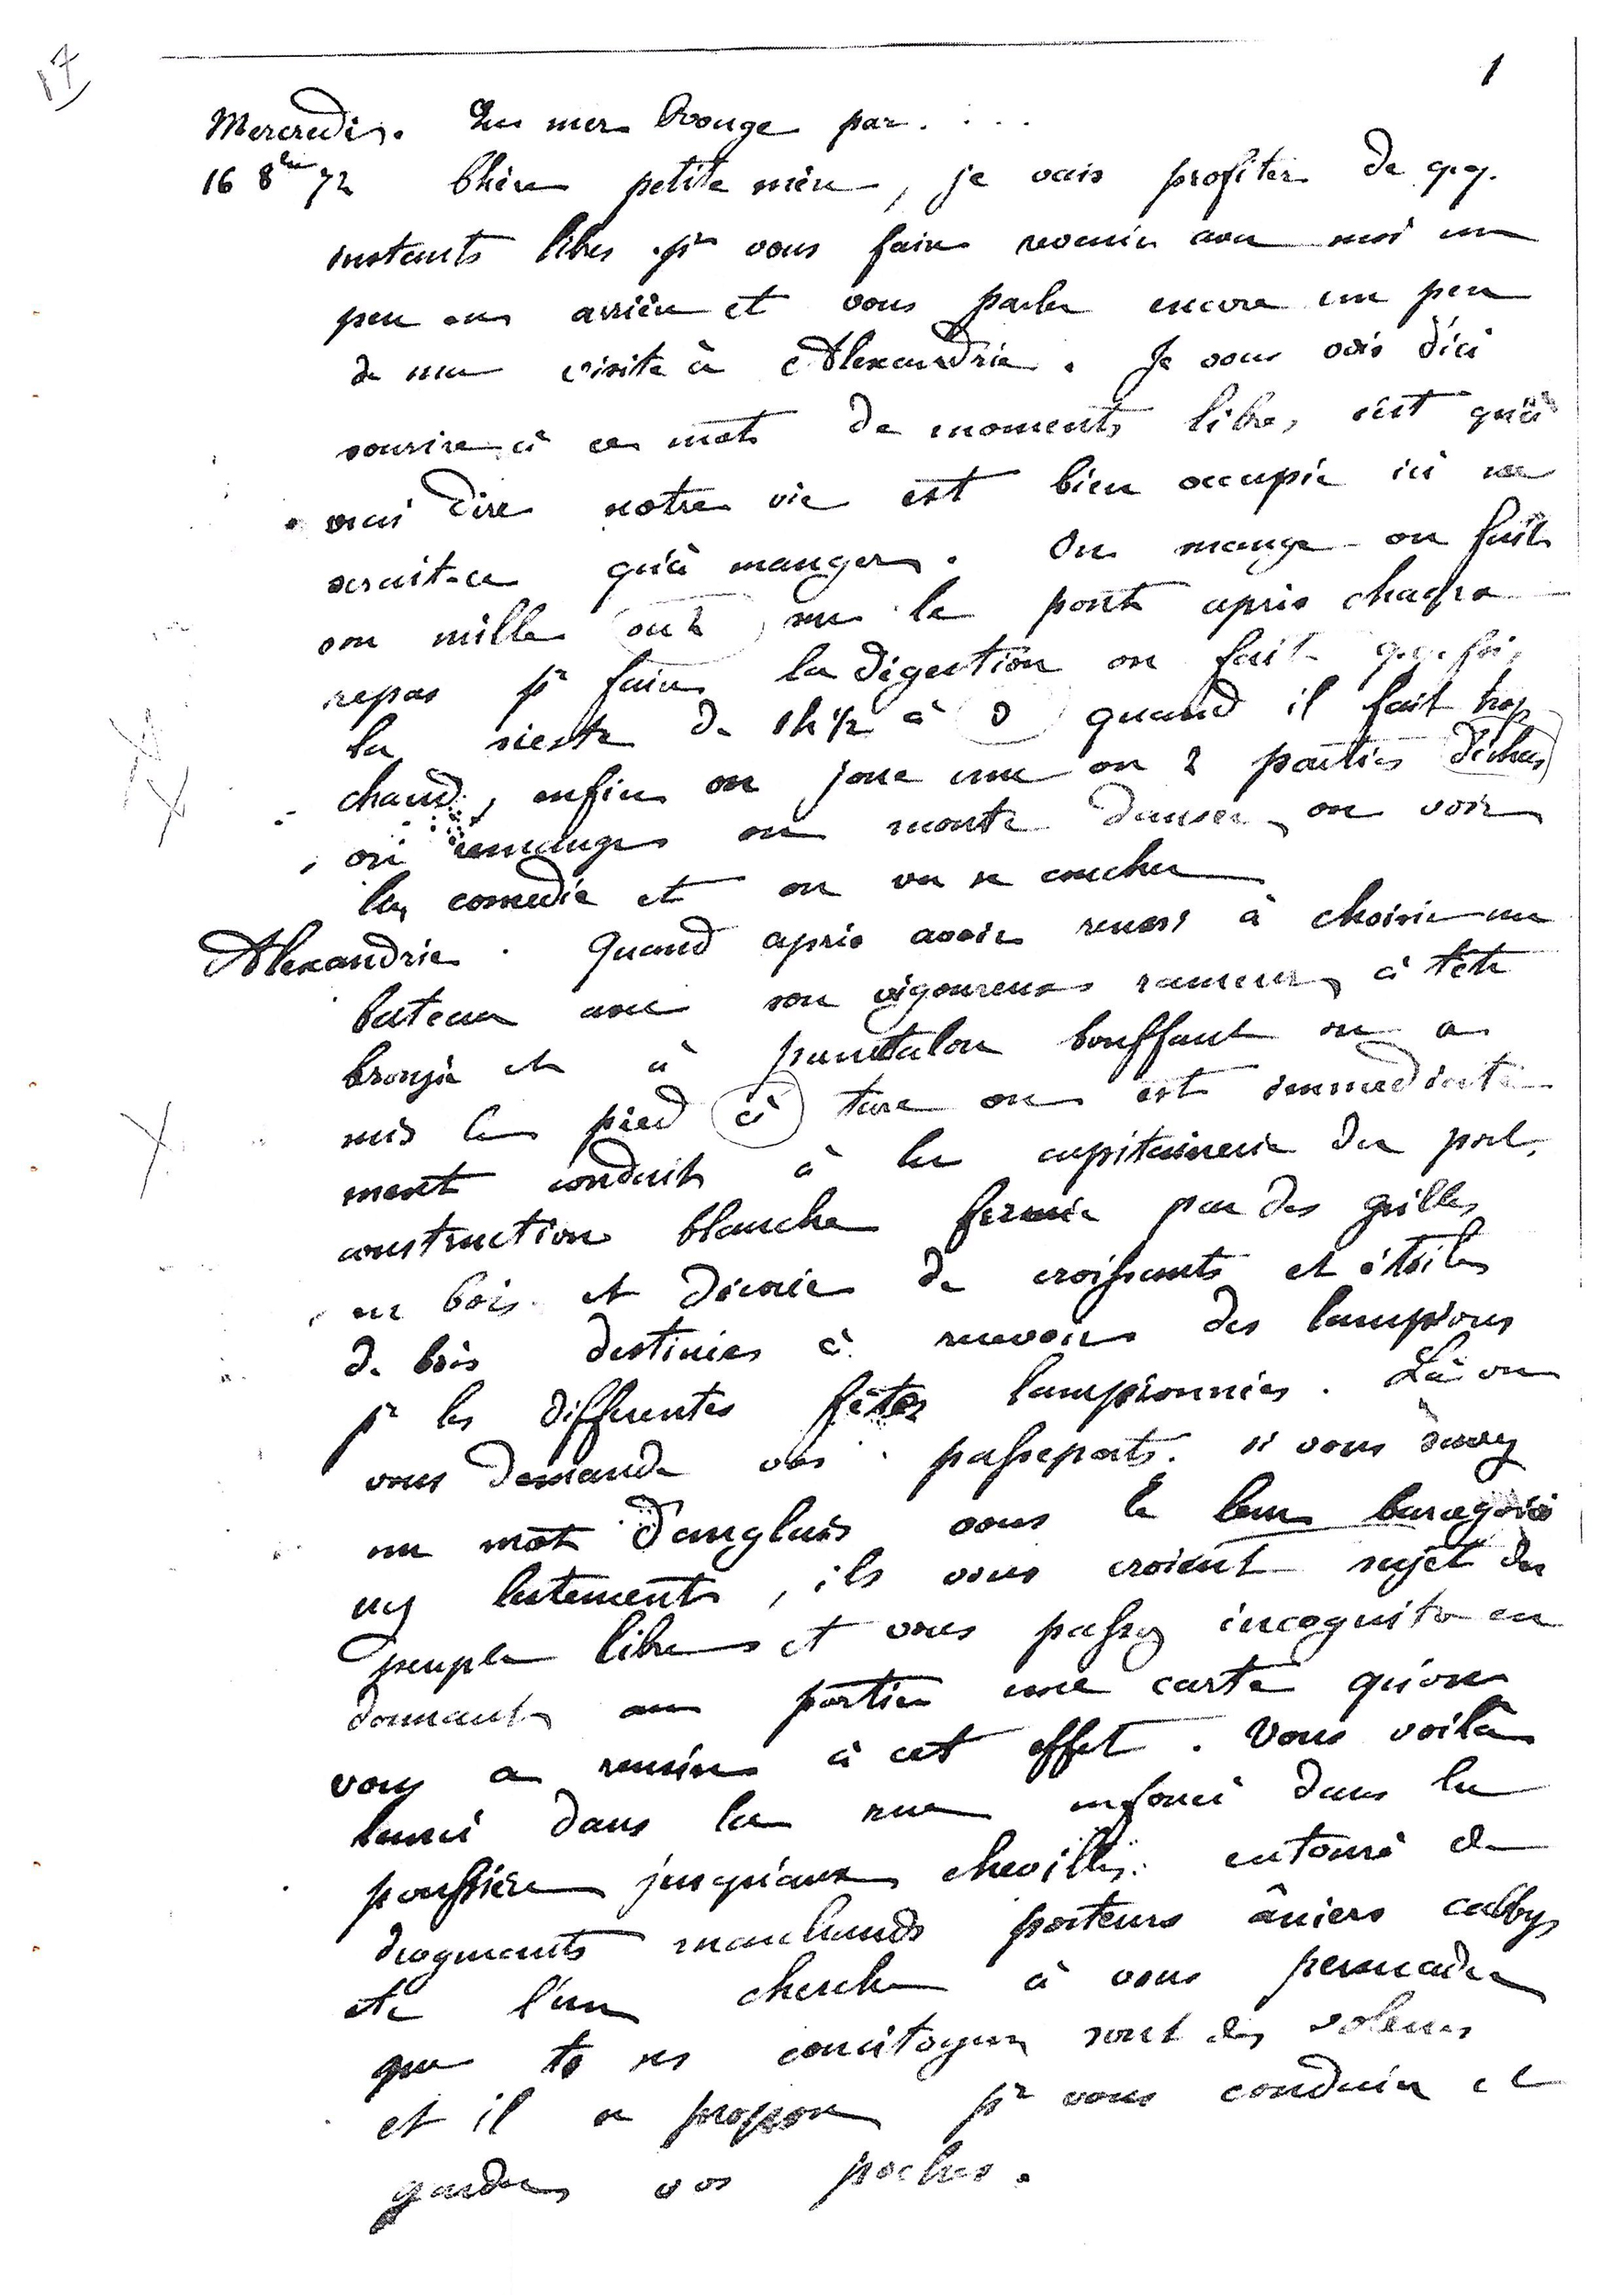 17
1
Mercredi. En mer Rouge par. . . .
16 8bre 72 Chère petite mère, je vais profiter de q.q.
instants libres pr vous faire revenir avec moi un
peu en arrière et vous parler encore un peu
de ma visite à Alexandrie. Je vous vois d'ici
sourire à ce mot de moments libres, c'est qu'à
vrai dire notre vie est bien occupée ici ne
serait-ce qu'à manger. On mange on fait
son mille ou 2 sur le pont après chaque
repas pr faire la digestion on fait q.q.fois
la sieste de 1h 1/2 à 3 quand il fait trop
chaud, enfin on joue une ou 2 parties d'échecs
on remange on monte danser, on voir
la comedie et on va se coucher
Alexandrie. Quand après avoir reussi à choisir un
bateau avec son vigoureux rameur à tête
bronzée et à pantalon bouffant on a
mis le pied à terre on est immediate
ment conduit à la capitainerie du port,
construction blanche fermée par des grilles
en bois et décorée de croissants et étoiles
de bois destinées à recevoir des lampions
pr les differentes fêtes lampionnées. Là on
vous demande vos passeports. si vous savez
un mot d'anglais vous le leur baragoui
nez lestement, ils vous croient sujet du
peuple libre et vous passez incognito en
donnant au portier une carte qu'on
vous a remise à cet effet. Vous voilà
lancé dans la rue enfoncé dans la
poussière jusqu'aux chevilles. entouré de
drogmants marchands porteurs âniers cabbys
etc l'un cherche à vous persuader
que ts ses concitoyens sont des voleurs
et il se propose pr vous conduire et
garder vos poches.